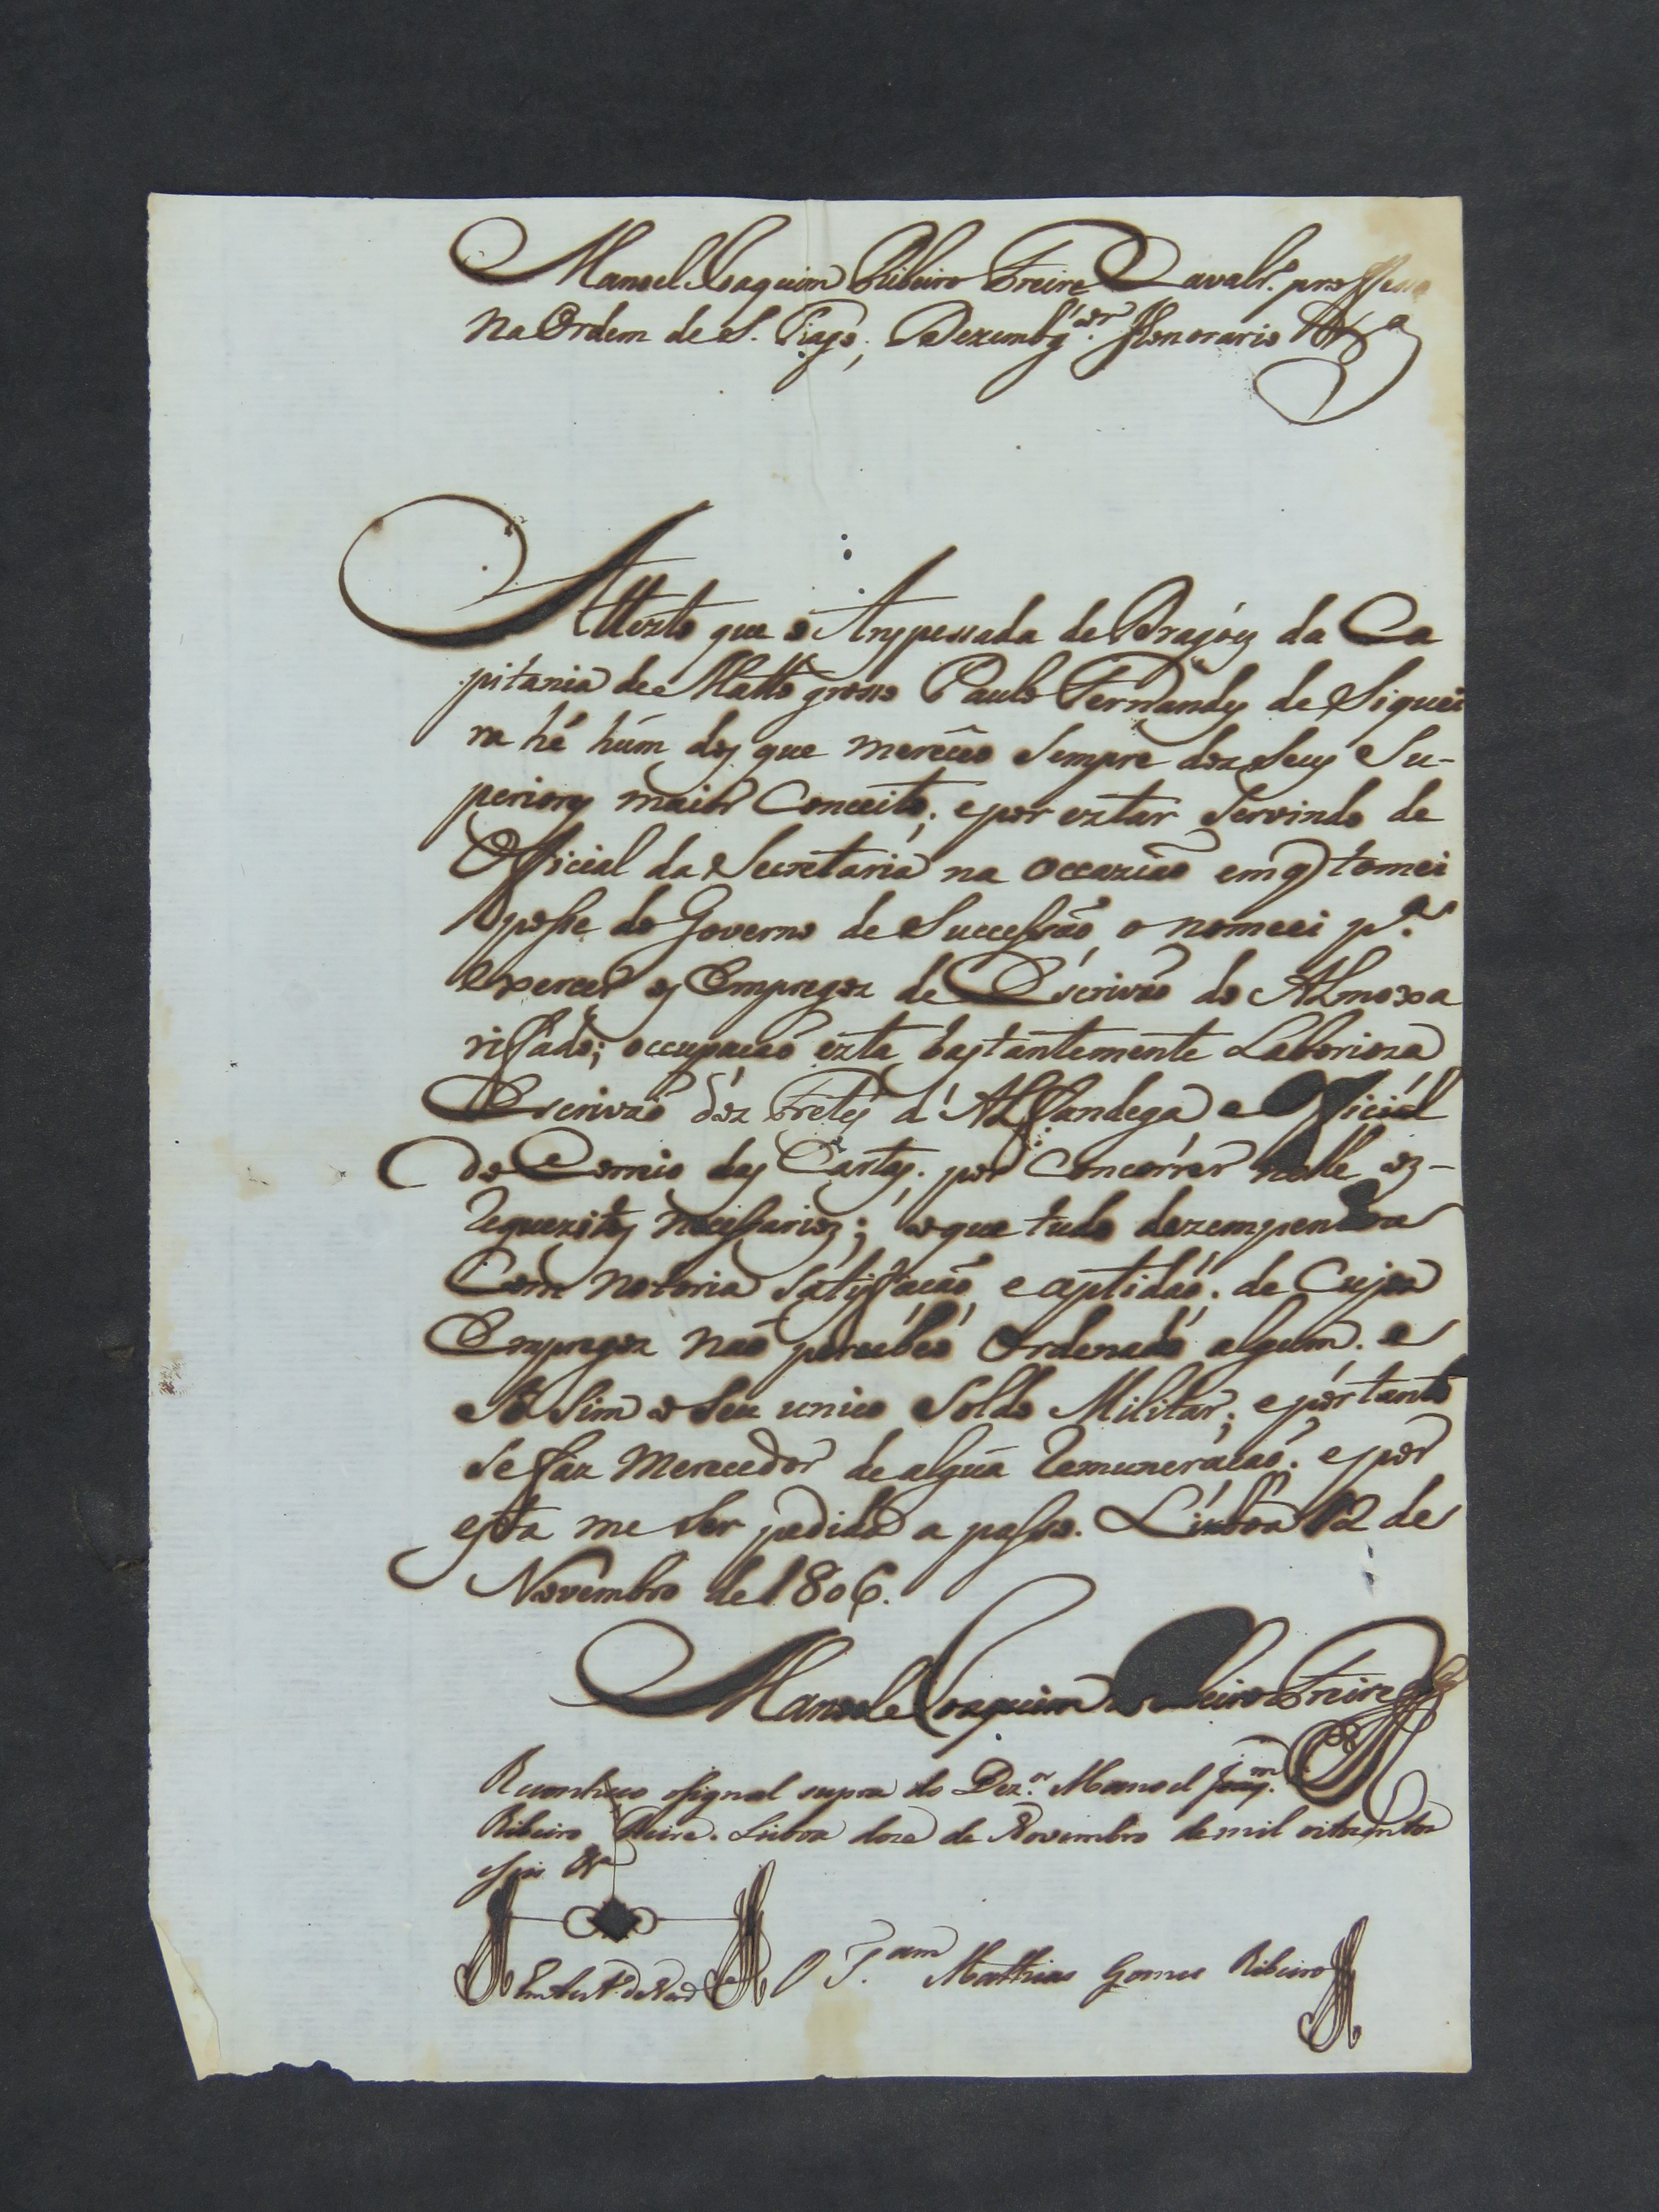 Manoel Joaquim Ribeiro Freire Cavalr.º professo
na Ordem de S. Tiago; Dezembg.ºr Honorario &.ª
Attesto que o Anspessada de Dragoẽs da Ca
pitania de Matto grosso Paulo Fernandes de Siquei
ra hé húm dos que merêceo sempre dos seus Su-
periores maior Conceito; e por estar Servindo de
Official da Secretaria na occazião em q tomei
posse do Governo de Successão o nomeei p.ª
exercer os Empregos de Escrivão do Almoxa
riffado; occupacaõ esta bastantemente Laborioza
Escrivaõ dos Fretes d'Alfandega e Official
do Correio das Cartas; por concorrer nelle os-
requezitos necessarios; o que tudo dezempenhou
Com notoria satisfacaõ e aptidaõ; de Cujos
Empregos naõ percebeo Ordenado algum; e
só sim o seu unico Soldo Militar; e por tanto
se faz Merecedor de algũa remuneracaõ; e por
esta me ser pedida a passo. Lisboa 12 de
Novembro de 1806.
Manoel Joaquim Ribeiro Freire
Reconheço o signal supra do Dez.or Manoel Joaq.m
Ribeiro Freire. Lisboa doze de Novembro de mil oitocentos
e seis &ª
Em test.º de verd.e
O T.am Mathias Gomes Ribeiro